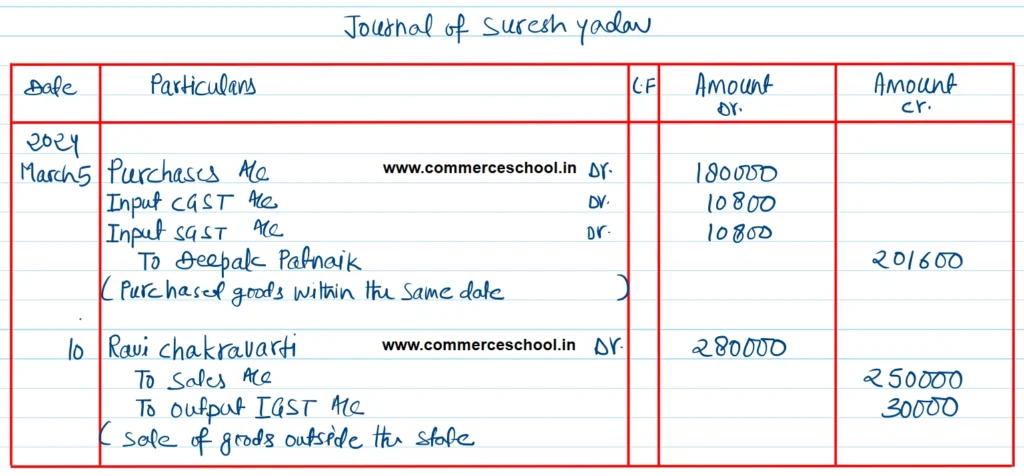 Journal of Suresh yadav
Date Particulars L.F Amount Dr. Amount Cr.
2024
March 5 Purchases A/c www.commerceschool.in Dr. 180000
Input CGST A/c Dr. 10800
Input SGST A/c Dr. 10800
To Deepak Patnaik 201600
(Purchased goods within the same date )
10 Ravi chakravarti www.commerceschool.in Dr. 280000
To Sales A/c 250000
To output IGST A/c 30000
( Sale of goods outside the state